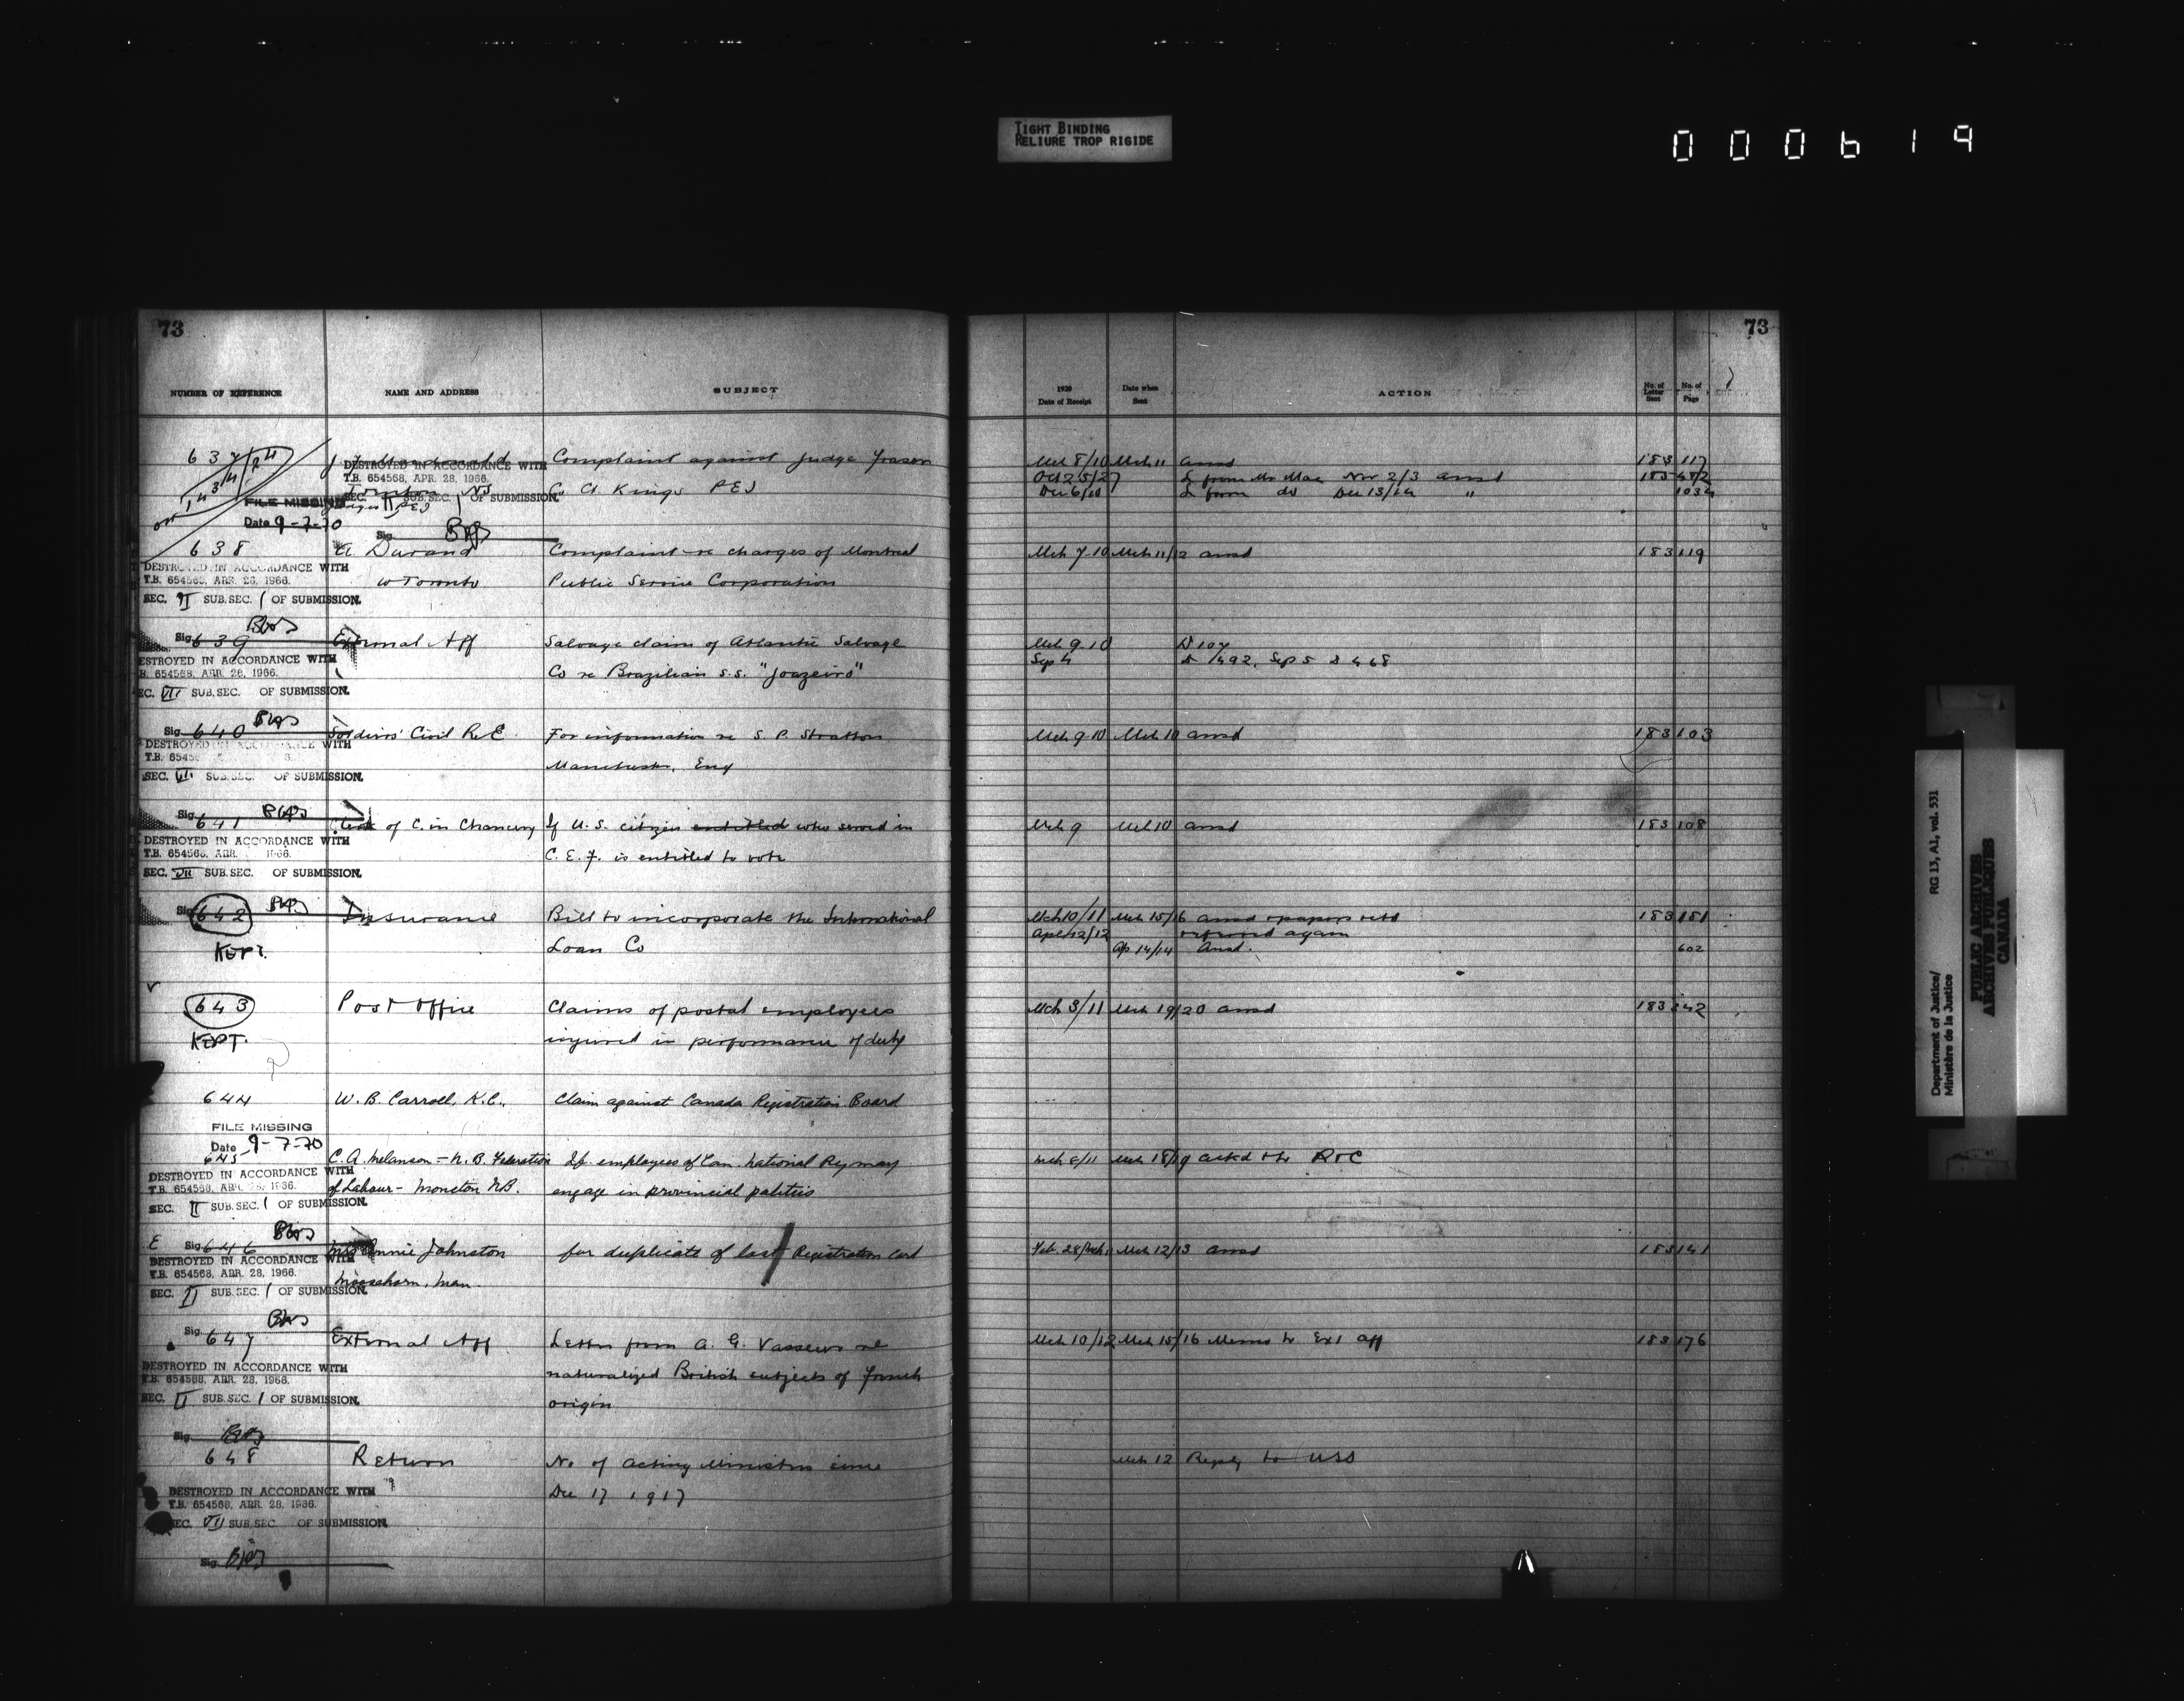 TIGHT BINDING
RELIURE TROP RIGIDE
000619
73
NUMBER OF REFERENCE NAME AND ADDRESS SUBJECT
637/24 J Complaint against Judge Fraser
1434 DESTROYED IN ACCORDANCE WITH
T.B. 654568, APR. 28, 1966.
SEC. II SUB.SEC. 1 OF SUBMISSION.
Co Ct Kings PEI
FILE MISSING
Date 9-7-70
Sig.
638 Durand Complaint re charges of Montreal
DESTROYED IN ACCORDANCE WITH
T.B. 654568, APR. 28, 1966. W Toronto Public Service Corporation
SEC. II SUB.SEC. 1 OF SUBMISSION.
Sig. 639 External Aff Salvage claim of Atlantic Salvage
DESTROYED IN ACCORDANCE WITH
T.B. 654568, APR. 28, 1966. Co re Brazilian S.S. "Joazeiro"
SEC. VII SUB.SEC. OF SUBMISSION.
Sig. 640 Soldiers' Civil R.E. For information re S. P. Stratton
DESTROYED IN ACCORDANCE WITH
T.B. 6545 Manchester, Eng
SEC. VII SUB.SEC. OF SUBMISSION.
Sig. 641 Clerk of C. in Chancery If U.S. citizen entitled who served in
DESTROYED IN ACCORDANCE WITH
T.B. 654568, APR. 1966. C.E.F. is entitled to vote
SEC. VII SUB.SEC. OF SUBMISSION.
Sig. 642 Insurance Bill to incorporate the International
KEPT. Loan Co
643 Post Office Claims of postal employees
KEPT. injured in performance of duty
644 W. B. Carroll, K.C., Claim against Canada Registration Board
FILE MISSING
Date 9-7-70
645 C. A. Melanson - N. B. Federation If employees of Can. National Ry may
DESTROYED IN ACCORDANCE WITH
T.B. 654568, APR. 28, 1966. of Labour - Moncton N.B. engage in provincial politics
SEC. II SUB.SEC. 1 OF SUBMISSION.
E Sig. 646 Mrs Annie Johnston for duplicate of last Registration card
DESTROYED IN ACCORDANCE WITH
T.B. 654568, APR. 28, 1966. Moosehorn, Man.
SEC. II SUB.SEC. 1 OF SUBMISSION.
Sig. 647 External Aff. Letter from A. G. Vasseur re
DESTROYED IN ACCORDANCE WITH naturalized British subjects of French
T.B. 654568, APR. 28, 1966.
SEC. II SUB.SEC. 1 OF SUBMISSION. origin
Sig.
648 Return No. of Acting Ministers since
DESTROYED IN ACCORDANCE WITH Dec 17 1917
T.B. 654568, APR. 28, 1966.
SEC. VII SUB.SEC. OF SUBMISSION.
Sig.
73
1920 Date of Receipt Date when Sent ACTION No. of Letter Sent No. of Page
Mch 8/10 Mch 11 ansd 183 117
Oct 25/27 L from Mr Mac Nov 2/3 ansd 185 482
Dec 6/10 L from do Dec 13/14 " 1034
Mch 7.10 Mch 11/12 ansd 183 119
Mch 9.10 D 107
Sep 4 D 1492, Sep 5 D 468
Mch 9.10 Mch 10 ansd 183 103
Mch 9 Mch 10 ansd 183 108
Mch 10/11 Mch 15/16 ansd & papers retd 183 181
Apl 12/12 referred again
Ap 14/14 Ansd. 602
Mch 3/11 Mch 19/20 ansd 183 242
Mch 8/11 Mch 18/19 ackd
Feb. 28/Mch 1 Mch 12/13 ansd 183 141
Mch 10/12 Mch 15/16 Memo to Ext Aff 183 176
Mch 12 Reply to USS
Department of Justice/
Ministère de la Justice
RG 13, A1, vol. 531
PUBLIC ARCHIVES
ARCHIVES PUBLIQUES
CANADA